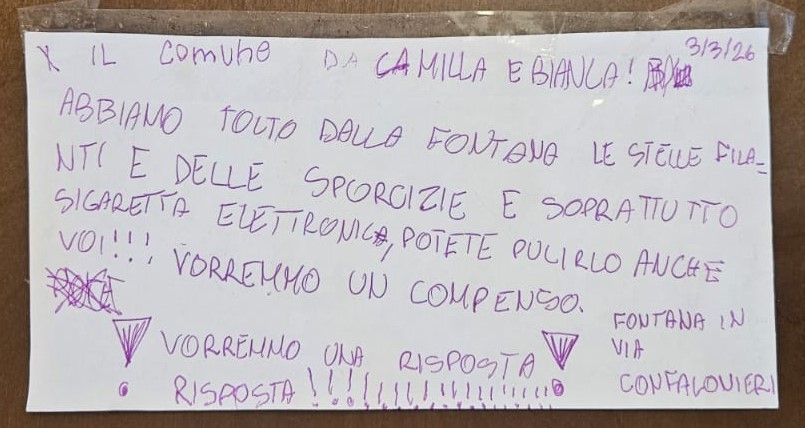 X IL COMUNE DA CAMILLA E BIANCA! 3/3/26
ABBIAMO TOLTO DALLA FONTANA LE STELLE FILA_
NTI E DELLE SPORCIZIE E SOPRATTUTTO
SIGARETTA ELETTRONICA, POTETE PULIRLO ANCHE
VOI!!!, VORREMMO UN COMPENSO.
VORREMMO UNA RISPOSTA
RISPOSTA!!!!!!!!!!!!!!!!!!!
FONTANA IN
VIA
CONFALONIERI